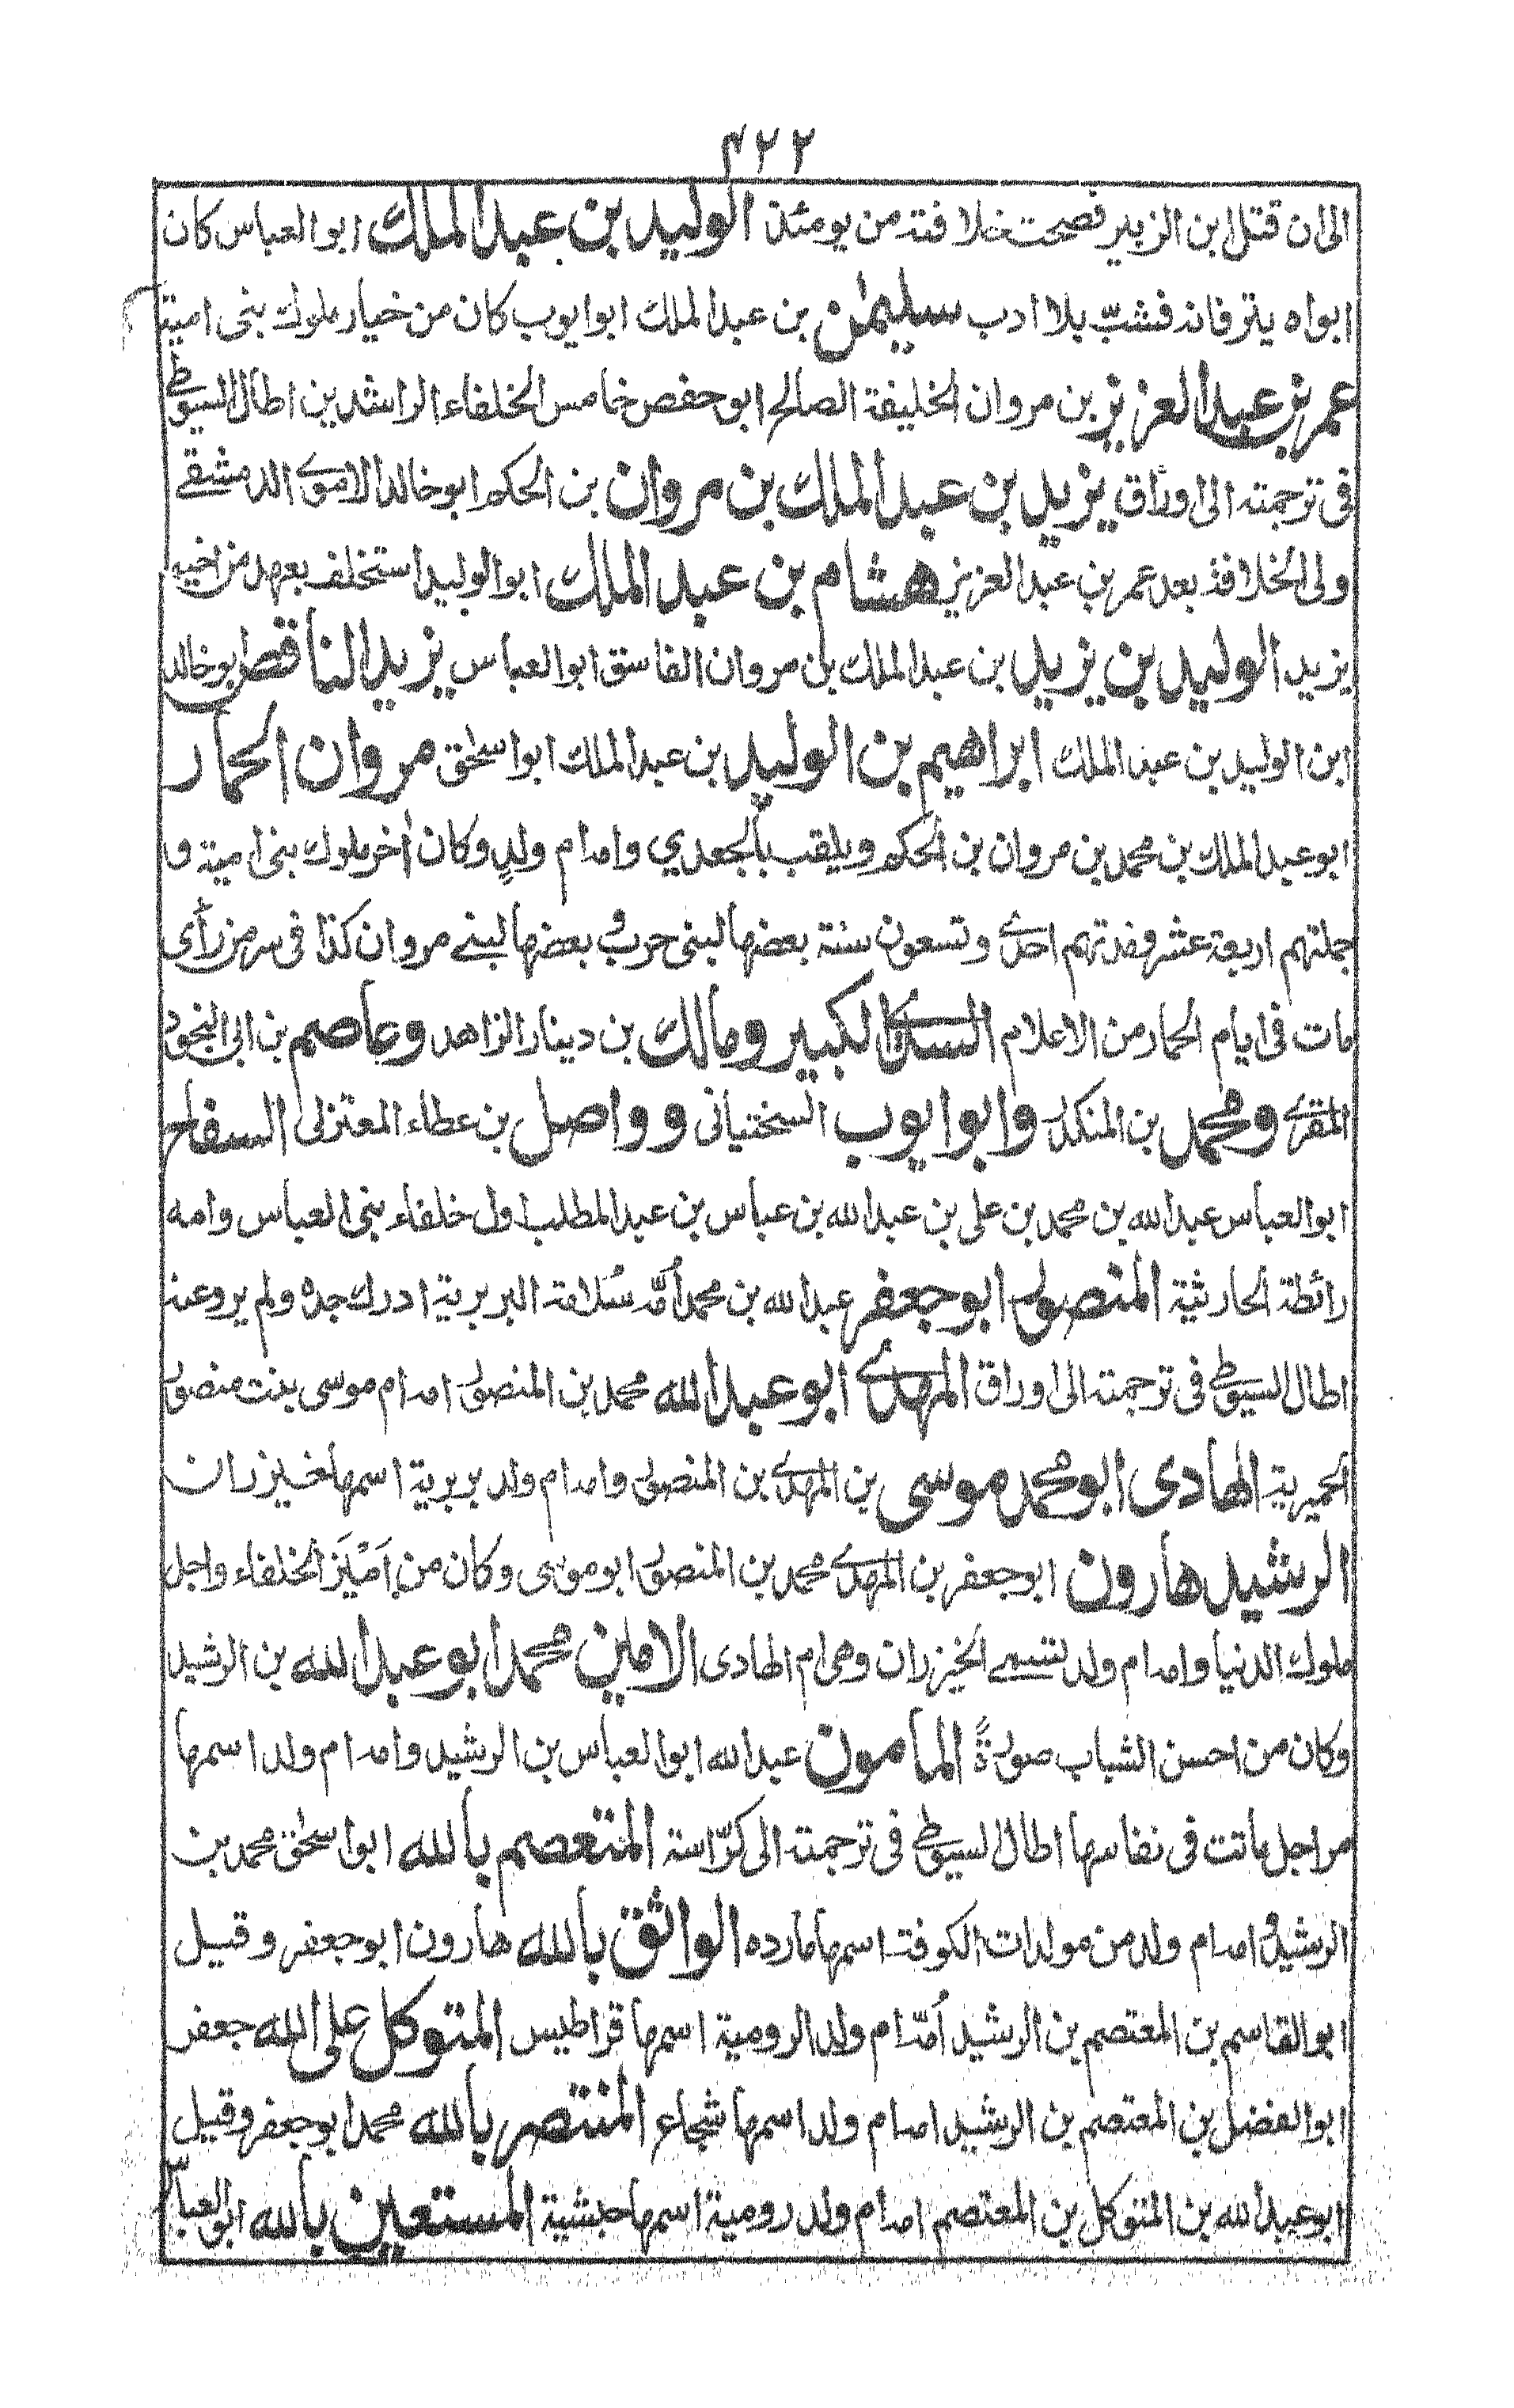 ٢٢٣
الى ان قتل ابن الزبير فصحت خلافته من يومئذ الوليد بن عبد الملك ابو العباس كان
ابواه يترفانه فشبّ بلا ادب سليمٰن بن عبد الملك ابو ايوب كان من خيار ملوك بنى امية
عمر بن عبد العزيز بن مروان الخليفة الصالح ابو حفص خامس الخلفاء الراشدين اطال السيوطے
فى ترجمته الى اوراق يزيد بن عبد الملك بن مروان بن الحكم ابو خالد الاموے الدمشقے
ولى الخلافة بعد عمر بن عبد العزيز هشام بن عبد الملك ابو الوليد استخلف بعهد من اخيه
يزيد الوليد بن يزيد بن عبد الملك بن مروان الفاسق ابو العباس يزيد الناقص ابو خالد
ابن الوليد بن عبد الملك ابراهيم بن الوليد بن عبد الملك ابو اسحٰق مروان الحمار
ابو عبد الملك بن محمد بن مروان بن الحكم ويلقب بالجعدي وامه ام ولدٍ وكان أخر ملوك بنى امية و
جملتهم اربعة عشر ومدتهم احدے وتسعون سنة بعضها لبنى حرب وبعضها لبنے مروان كذا فى سر من رأى
مات فى ايام الحمار من الاعلام السدے الكبير ومالك بن دينار الزاهد وعاصم بن ابى النجود
المقرے ومحمد بن المنكدر وابو ايوب السختيانى و واصل بن عطاء المعتزلى السفاح
ابو العباس عبد الله بن محمد بن على بن عبد الله بن عباس بن عبد المطلب اول خلفاء بنى العباس وامه
رائطة الحارثية المنصور ابو جعفر عبد الله بن محمد اُمّه سُلامة البربرية ادرك جده ولم يرو عنه
اطال السيوطے فى ترجمته الى اوراق المهدے ابو عبد الله محمد بن المنصور امه ام موسى بنت منصور
الحميرية الهادى ابو محمد موسى بن المهدے بن المنصور وامه ام ولد بربرية اسمها خيزران
الرشيد هارون ابو جعفر بن المهدے محمد بن المنصور ابو موسى وكان من اَمْيَز الخلفاء واجل
ملوك الدنيا وامه ام ولد تسمے الخيزران وهى ام الهادى الامين محمد ابو عبد الله بن الرشيد
وكان من احسن الشباب صورةً المامون عبد الله ابو العباس بن الرشيد وامه ام ولد اسمها
مراجل ماتت فى نفاسها اطال السيوطے فى ترجمته الى كرّاسة المتعصم بالله ابو اسحٰق محمد بن
الرشيد و امه ام ولد من مولدات الكوفة اسمها مارده الواثق بالله هارون ابو جعفر وقيل
ابو القاسم بن المعتصم بن الرشيد اُمّه ام ولد الرومية اسمها قراطيس المتوكل على الله جعفر
ابو الفضل بن المعتصم بن الرشيد امه ام ولد اسمها شجاع المنتصر بالله محمد ابو جعفر وقيل
ابو عبد الله بن المتوكل بن المعتصم امه ام ولد رومية اسمها حبشية المستعين بالله ابو العباس